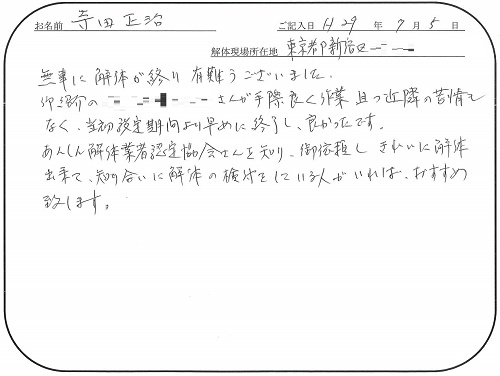 お名前 寺田正治 ご記入日 H29 年 7 月 5 日
解体現場所在地 東京都新宿区
無事に解体が終り有難うございました。
御紹介の さんが手際良く作業且つ近隣の苦情も
なく、当初設定期間より早めに終了し、良かったです。
あんしん解体業者認定協会さんを知り、御依頼しきれいに解体
出来て、知り合いに解体の検討をしている人がいれば、おすすめ
致します。